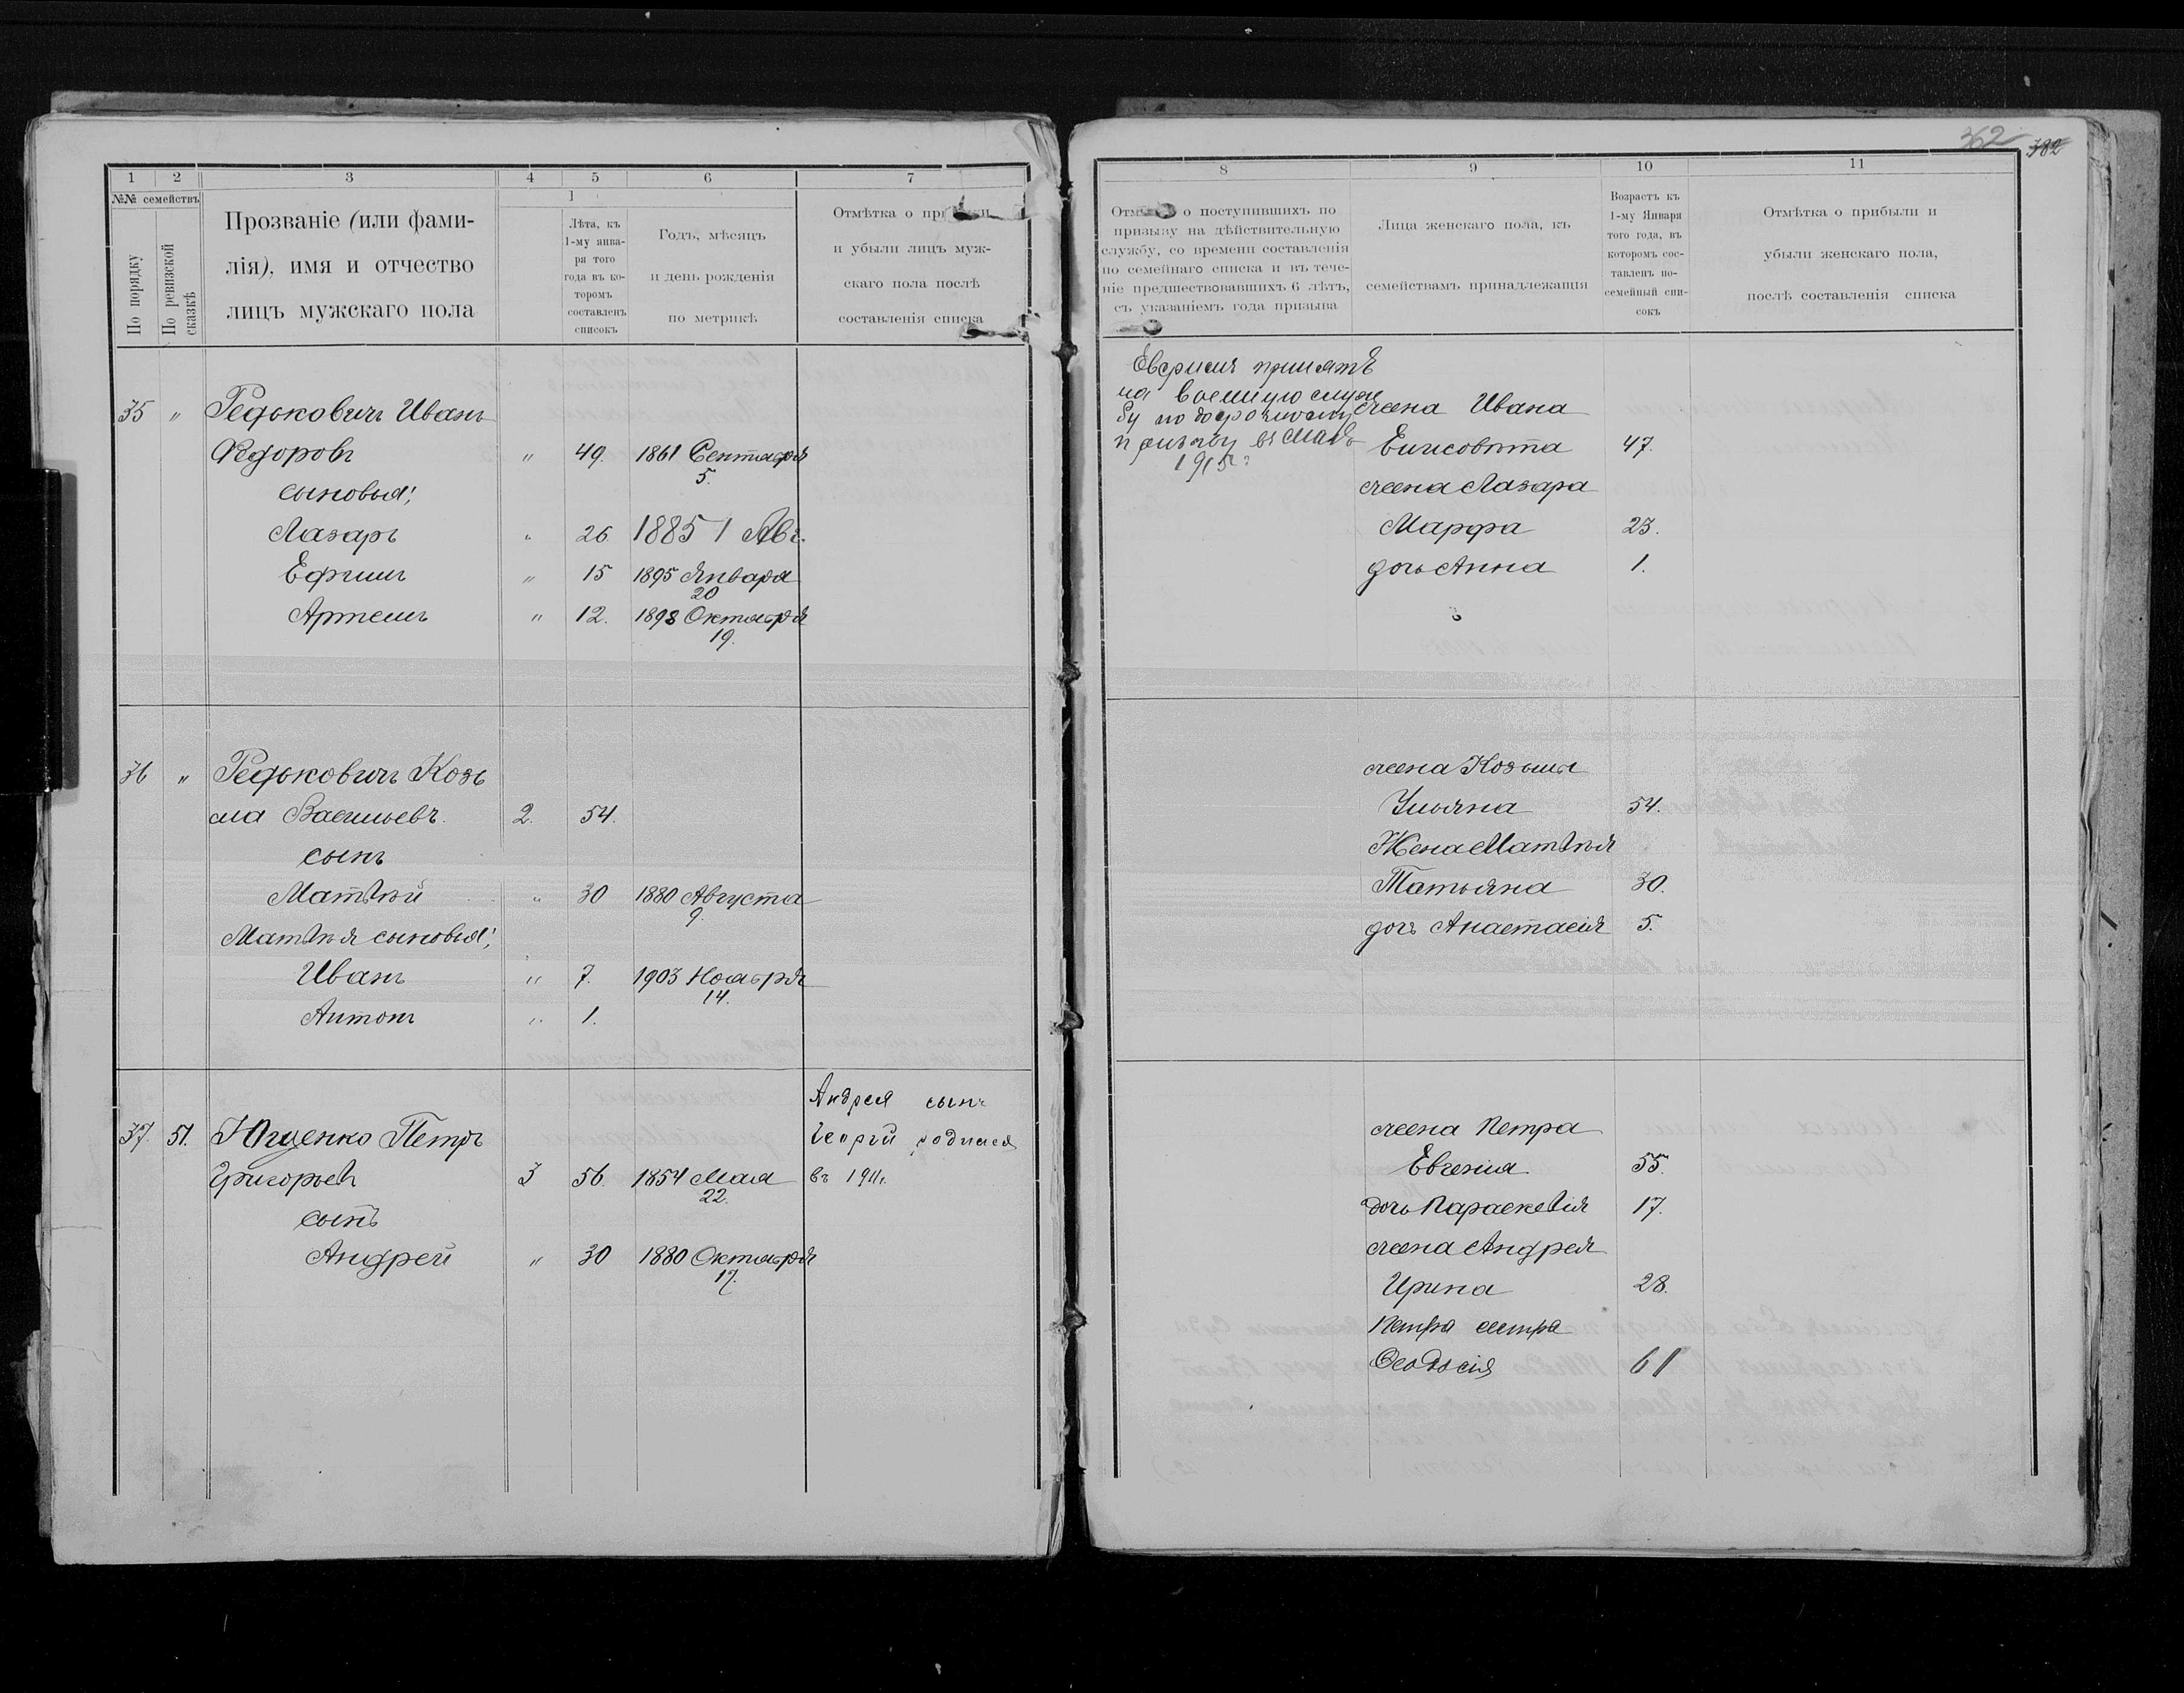 1 2 3 4 5 6 7
№№ семействъ
По порядку
По ревизской сказкѣ
Прозваніе (или фами-
лія), имя и отчество
лицъ мужскаго пола
1
Лѣта, къ
1-му янва-
ря того
года въ ко-
торомъ
составленъ
списокъ
Годъ, мѣсяцъ
и день рожденія
по метрикѣ
Отмѣтка о
и убыли лицъ муж-
скаго пола послѣ
составленія списка
35 " Редьковичъ Иванъ
Ѳедоровъ " 49. 1861 Сентября
5.
сыновья:
Лазарь " 26 1885 1 Авг.
Ефимъ " 15 1895 Января
20
Артемъ " 12. 1898 Октября
19.
36 " Редьковичъ Козь
ма Васильевъ. 2. 54.
сынъ
Матвѣй " 30 1880 Августа
9.
Матвѣя сыновья:
Иванъ " 7. 1903 Ноября
14.
Антонъ " 1.
Андрея сынъ
37. 51. Ющенко Петръ Георгій родился
Григорьевъ 3 56 1854 Мая въ 1911г.
22.
сынъ
Андрей " 30 1880 Октября
17.
362
382
8 9 10 11
о поступившихъ по
призыву на дѣйствительную
службу, со времени составленія
по семейнаго списка и въ тече-
ніе предшествовавшихъ 6 лѣтъ,
съ указаніемъ года призыва
Лица женскаго пола, къ
семействамъ принадлежащія
Возрастъ къ
1-му Января
того года, въ
которомъ сос-
тавленъ по-
семейный спи-
сокъ
Отмѣтка о прибыли и
убыли женскаго пола,
послѣ составленія списка
принятъ
на военную служ
бу по досрочному
призыву въ Маѣ
1915г
жена Ивана
Елисовѣта 47.
жена Лазара
Марфа 23.
дочь Анна 1.
жена Козьмы
Ульяна 54.
Жена Матвѣя
Татьяна 30.
дочь Анастасія 5.
жена Петра
Евгенія 55.
дочь Параскевія 17.
жена Андрея
Ирина 28.
Петра сестра
Ѳеодосія 61